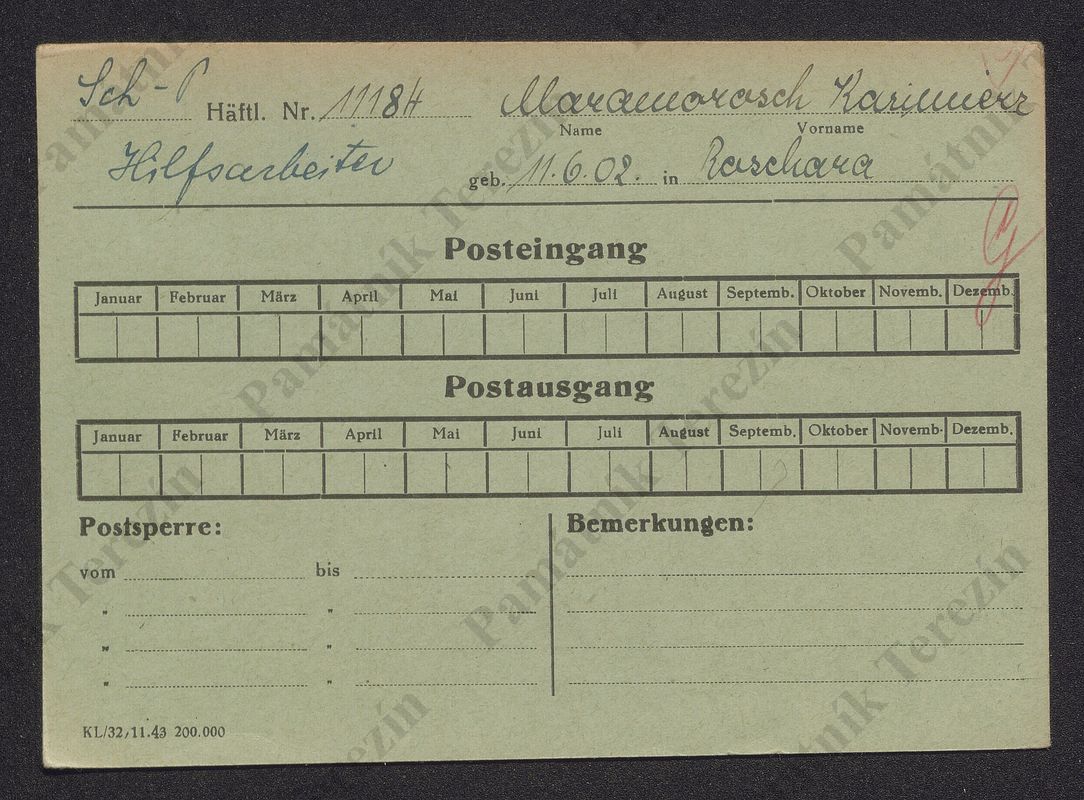 Sch-P Häftl. Nr. 11184 Maramorosch Kazimierz
Name Vorname
Hilfsarbeiter geb. 11.6.02. in Roschara
Posteingang
Januar Februar März April Mai Juni Juli August Septemb. Oktober Novemb. Dezemb.
Postausgang
Januar Februar März April Mai Juni Juli August Septemb. Oktober Novemb. Dezemb.
Postsperre: Bemerkungen:
vom bis
" "
" "
" "
KL/32, 11.43 200.000
Památník Terezín